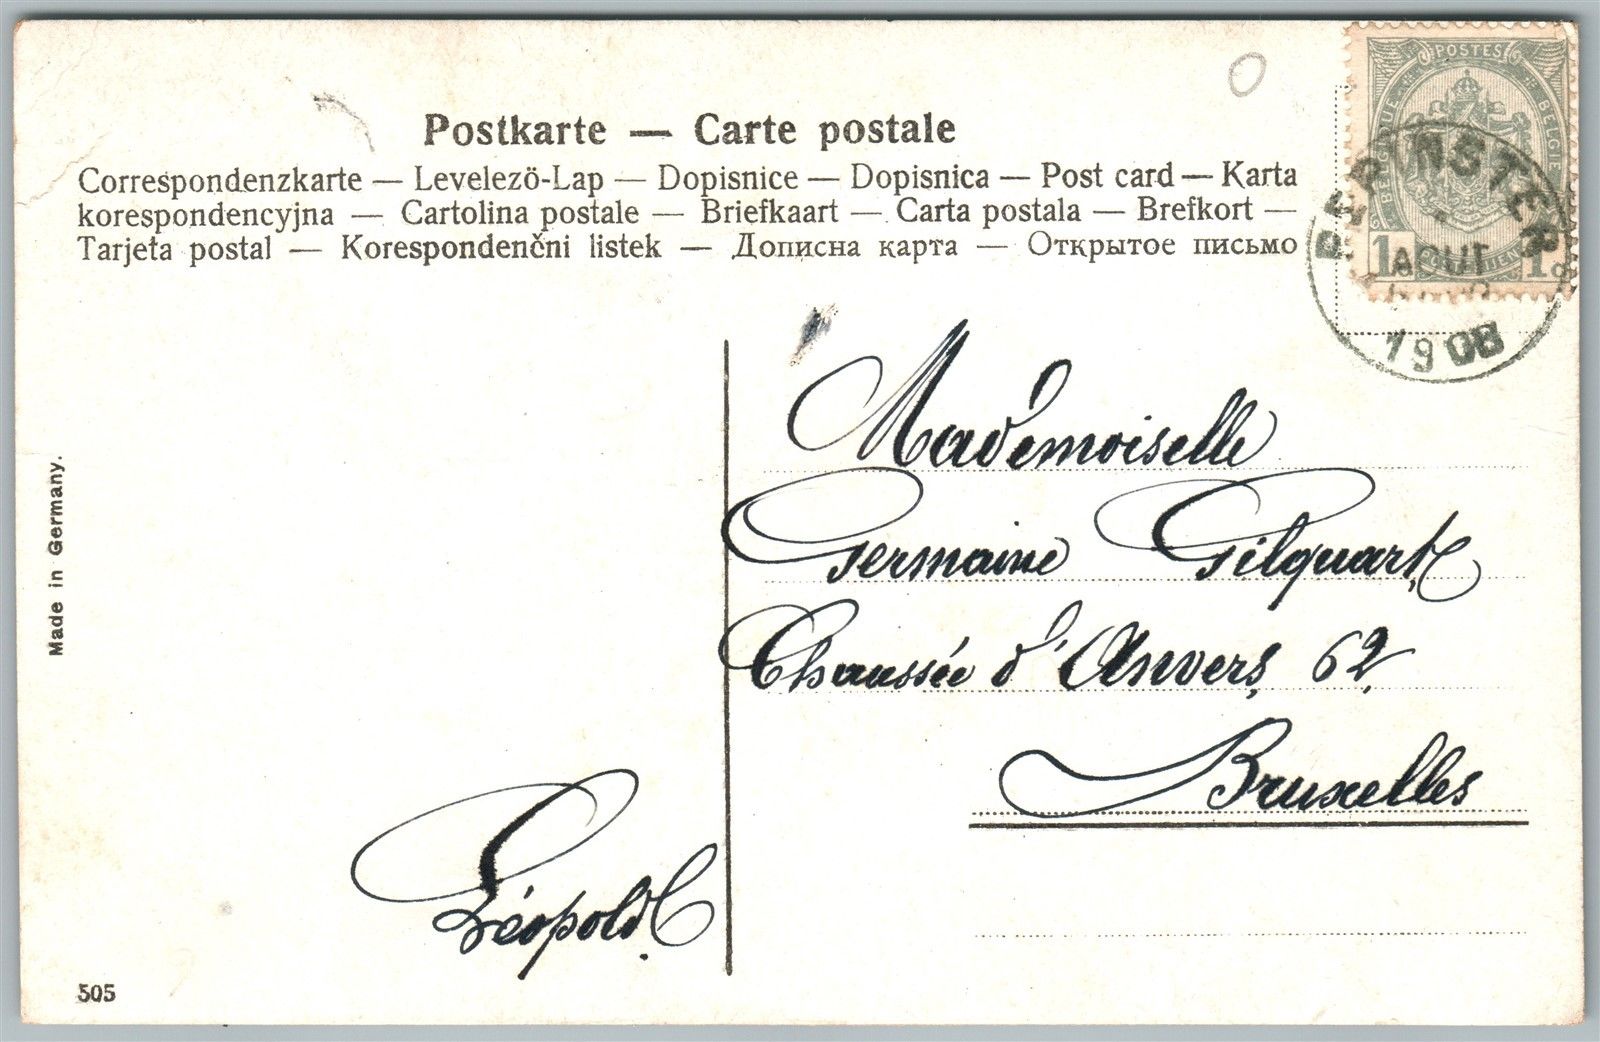 Postkarte — Carte postale
Correspondenzkarte — Levelezö-Lap — Dopisnice — Dopisnica — Post card — Karta
korespondencyjna — Cartolina postale — Briefkaart — Carta postala — Brefkort —
Tarjeta postal — Korespondenčni listek — Дописна карта — Открытое письмо
POSTES
BELGIQUE BELGIE
1 1
PEPINSTER
AOUT
1908
Mademoiselle
Germaine Gilquart
Chaussée d'Anvers, 62,
Bruxelles
Léopold.
Made in Germany.
505